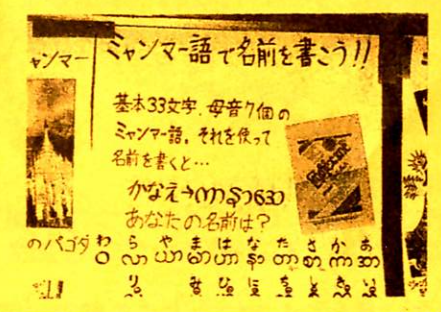 ャンマー
ミャンマー語で名前を書こう!!
基本33文字、母音7個の
ミャンマー語。それを使って
名前を書くと…
かなえ→ကာနာအေ
あなたの名前は?
のパゴダ
わ ら や ま は な た さ か あ
ဝ လာ ယာ မာ ဟာ နာ တာ စာ ကာ အာ
り み ひ に ち し き い